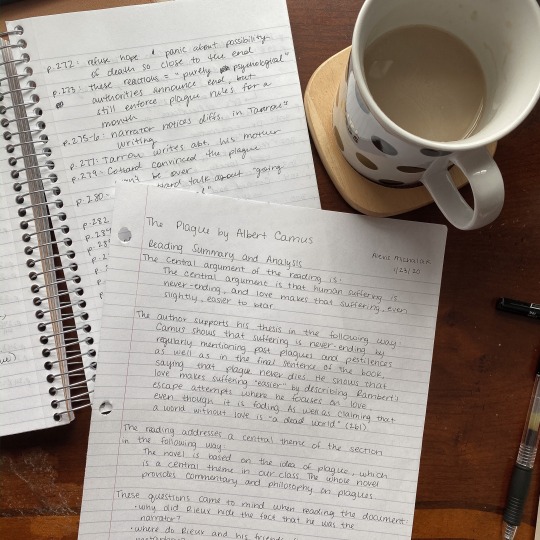 p.272: refuse hope & panic about possibility
of death so close to the end
p.273: these reactions = "purely psychological"
authorities announce end, but
still enforce plague rules for a
month
p.275-6: narrator notices diffs. in Tarrou's
writing
p.277: Tarrou writes abt. his mother
p.279: Cottard convinced the plague
won't be over
talk about "going
p.280
p.282
p.284
The Plague by Albert Camus
1/23/20
Reading Summary and Analysis
The central argument of the reading is:
The central argument is that human suffering is
never-ending, and love makes that suffering, even
slightly, easier to bear
The author supports his thesis in the following way
Camus shows that suffering is never-ending by
regularly mentioning past plagues and pestilences
as well as in the final sentence of the book
saying that plague never dies. He shows that
love makes suffering "easier" by describing Rambert's
escape attempts where he focuses on love
even though it is fading. As well as claiming that
a world without love is "a dead world" (261).
The reading addresses a central theme of the section
in the following way
The novel is based on the idea of plague, which
is a central theme in our class. The whole novel
provides commentary and philosophy on plagues
These questions came to mind when reading the document:
• why did Rieux hide the fact that he was the
narrator?
• where do Rieux and his friends